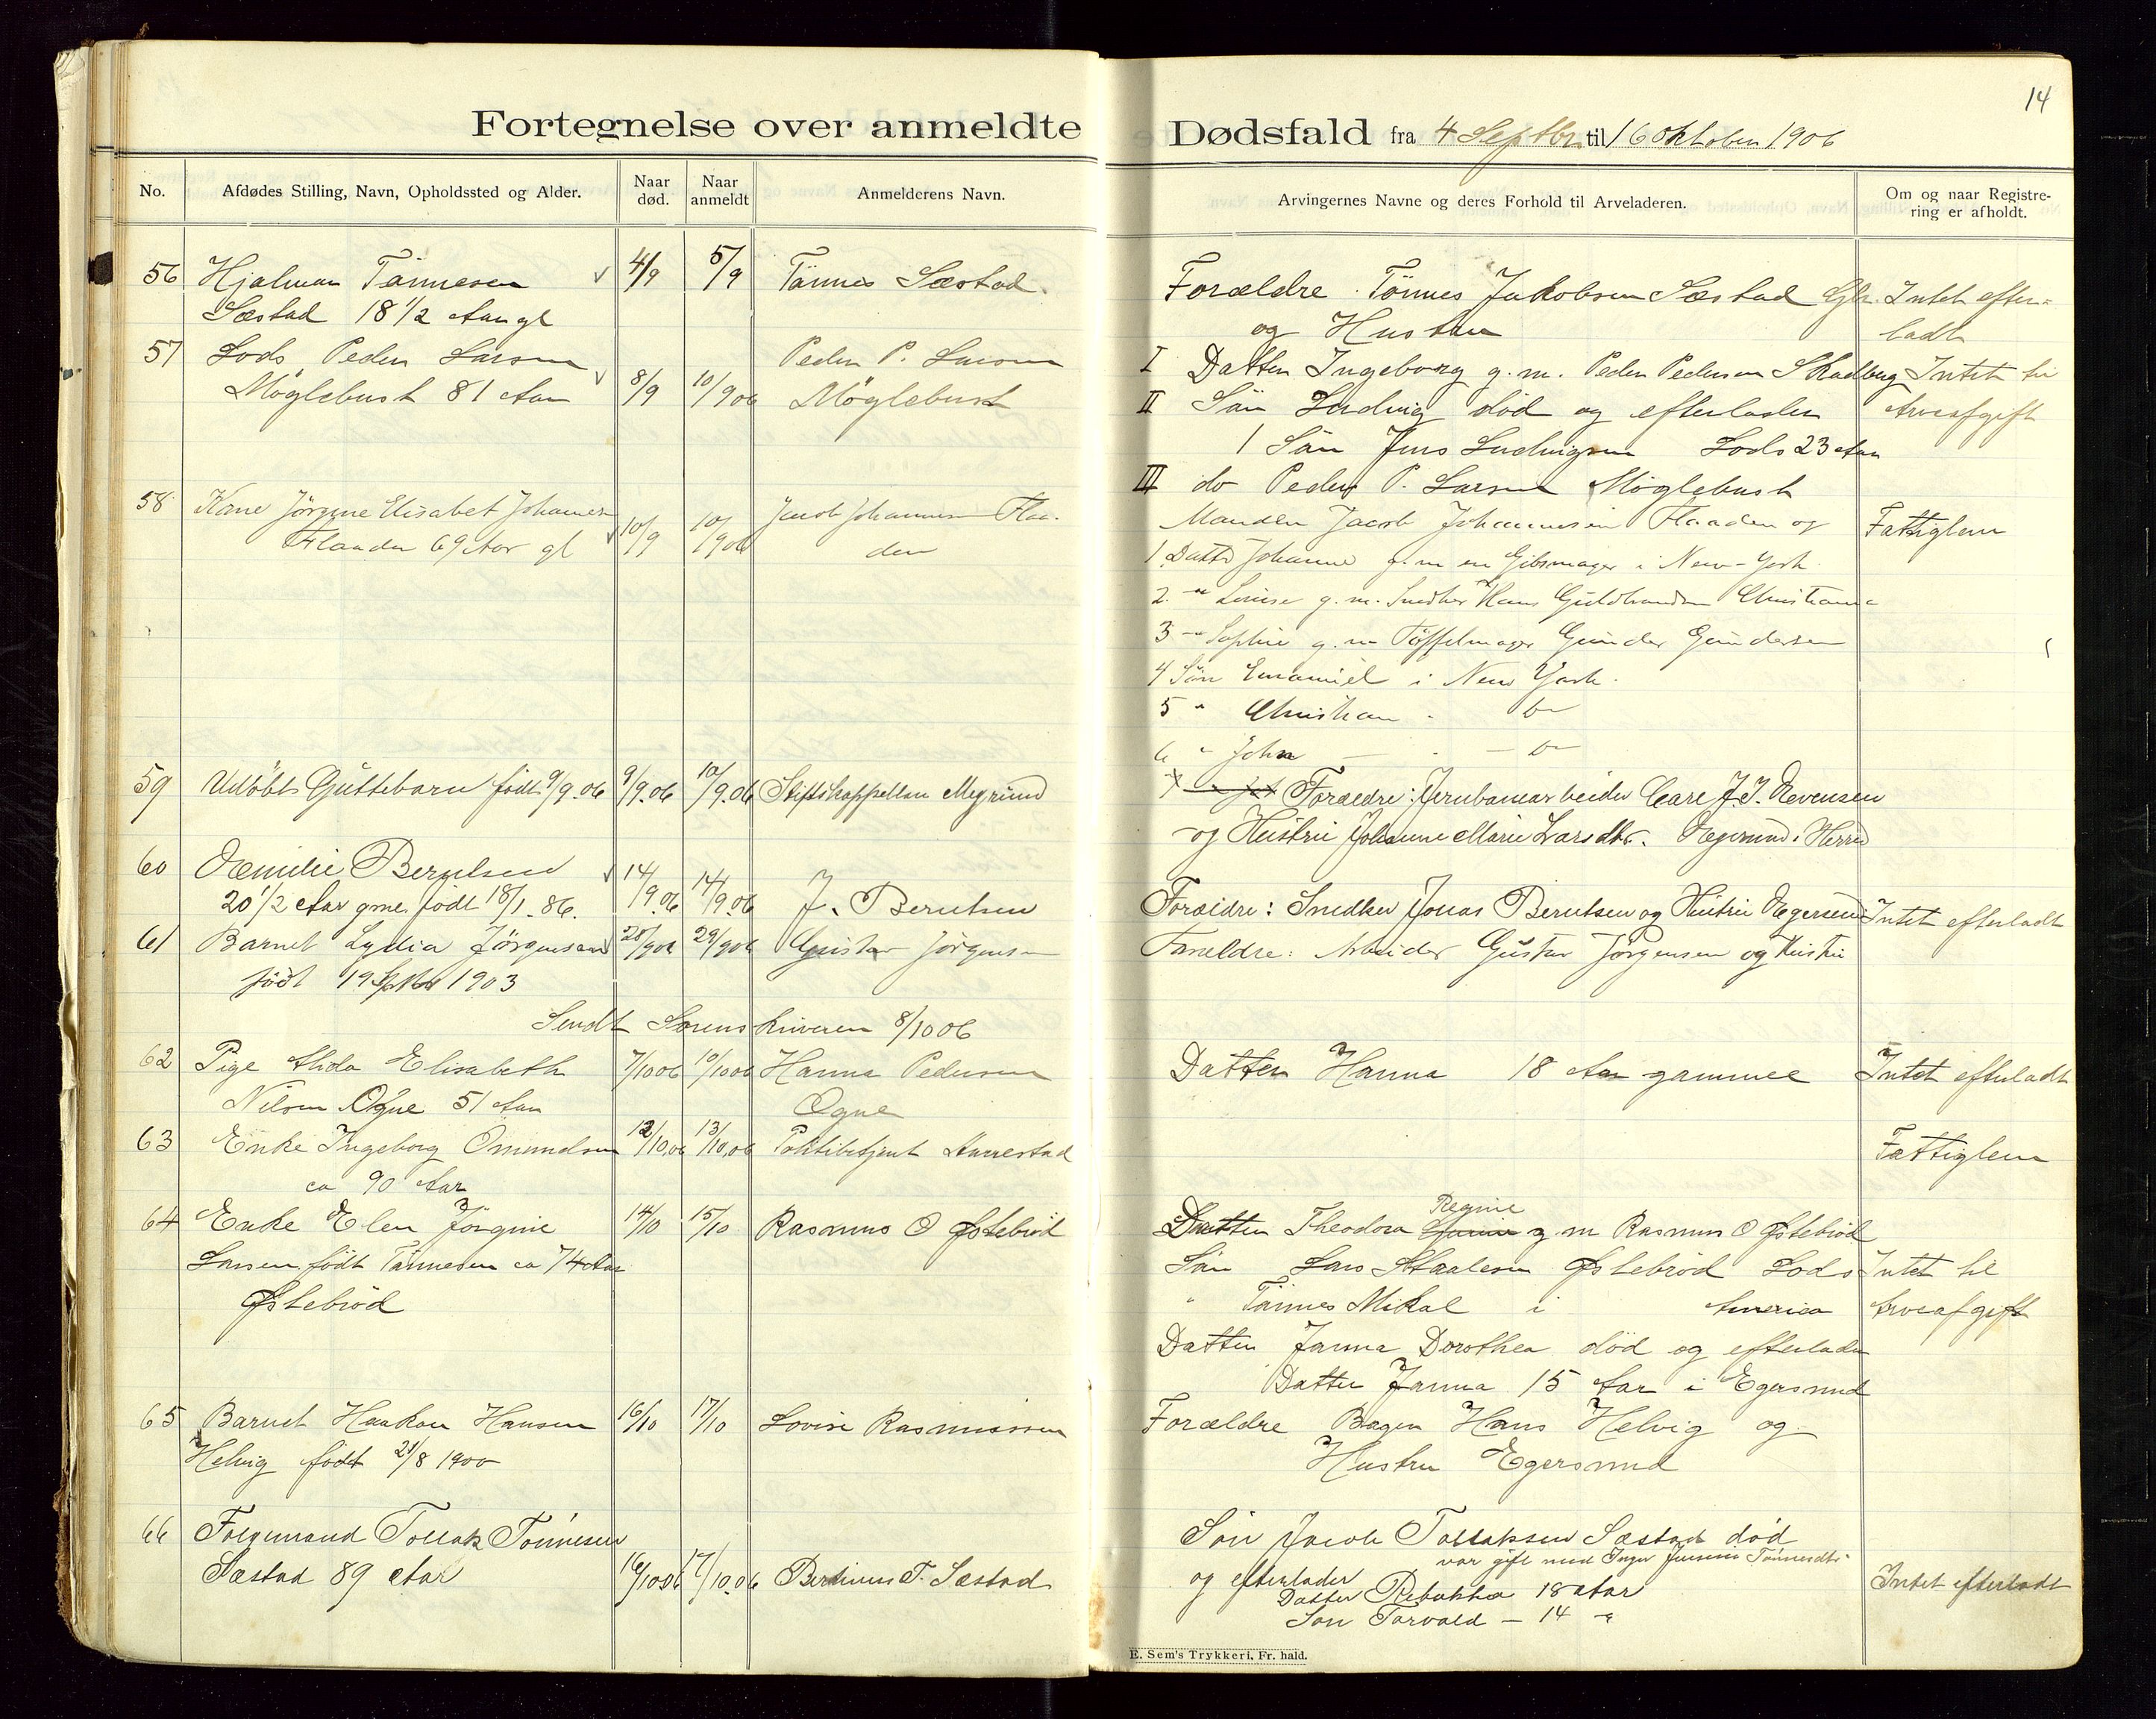 14
Fortegnelse over anmeldte Dødsfald fra 4 Septbr til 16 Oktober 1906
No.
Afdødes Stilling, Navn, Opholdssted og Alder.
Naar død.
Naar anmeldt
Anmelderens Navn.
Arvingernes Navne og deres Forhold til Arveladeren.
Om og naar Registrering er afholdt.
56 Hjalmar Tønnesen 4/9 5/9 Tønnes Sæstad. Forældre Tönnes Jakobsen Sæstad Intet efter-
Sæstad 18 1/2 Aar gl og Hustru ladt
57 Lods Peder Larsen Peder P. Larsen I Datter Ingeborg g. m. Peder Pedersen Skadberg Intet til
Möglebust 81 Aar 8/9 10/9 06 Möglebust II Sön Ludvig död og efterlader Arveafgift
1 Sön Jens Ludvigsen Lods 23 Aar
III do Peder P. Larsen Möglebust
58 Kone Jörgine Elisabet Johannes- 10/9 10/9 06 Jacob Johannesen Flaa- Manden Jacob Johannesen Flaaden og Fattiglem
Flaaden 69 Aar gl den 1 Datter Johanne g. m en Gibsmager i New-York
2. " Louise g. m. Snedker Hans Guldbrandsen Christiania
3 " Sophie g. m Töffelmager Gunder Gundersen
4 Sön Emanuel i New York.
5 " Christian " do
6 " John — " — do
59 Udöbt Guttebarn födt 9/9.06 9/9.06 10/9.06 Stiftskappellan Mygrund Forældre: Jernbanearbeider Carl J. J. Evensen
og Hustru Johanne Marie Larsdtr. Egersund Herred
60 Emilie Berntsen 14/9.06 14/9.06 J. Berntsen
20 1/2 Aar gml. födt 18/1.86. Forældre: Snedker Jonas Berntsen og Hustru Egersund Intet efterladt
61 Barnet Lydia Jörgensen 28/9 06 29/9 06 Gustav Jörgensen Forældre: Arbeider Gustav Jörgensen og Hustru
födt 19 Septbr 1903
Sendt Sorenskriveren 8/10 06
62 Pige Alida Elisabeth 7/10 06 10/10 06 Hanna Pedersen Datter Hanna 18 Aar gammel Intet efterladt
Nilsen Ogne 51 Aar Ogne
63 Enke Ingeborg Omundsen 12/10.06 13/10.06 Politibetjent Aarrestad Fattiglem
ca 90 Aar
64 Enke Elen Jörgine 14/10 15/10 Rasmus O Østebröd Datter Theodora Regine g m Rasmus O Østebröd
Larsen födt Tönnesen ca 74 Aar Sön Lars Staalesen Østebröd Lods Intet til
Østebröd " Tönnes Mikal i America Arveafgift
Datter Janna Dorothea död og efterlader
Datter Janna 15 Aar i Egersund
65 Barnet Haakon Hansen 16/10 17/10 Lovise Rasmussen Forældre Bager Hans Helvig og
Helvig födt 21/8 1900 Hustru Egersund
66 Folgemand Tollak Tönnesen Sön Jacob Tollaksen Sæstad död
var gift med Inger Tönnesdtr.
Sæstad 89 Aar 16/10 06 17/10.06 Bertinius T. Sæstad og efterlader
Datter Rebekka 18 Aar Intet efterladt
Sön Torvald — 14 "
E. Sem's Trykkeri, Fr. hald.